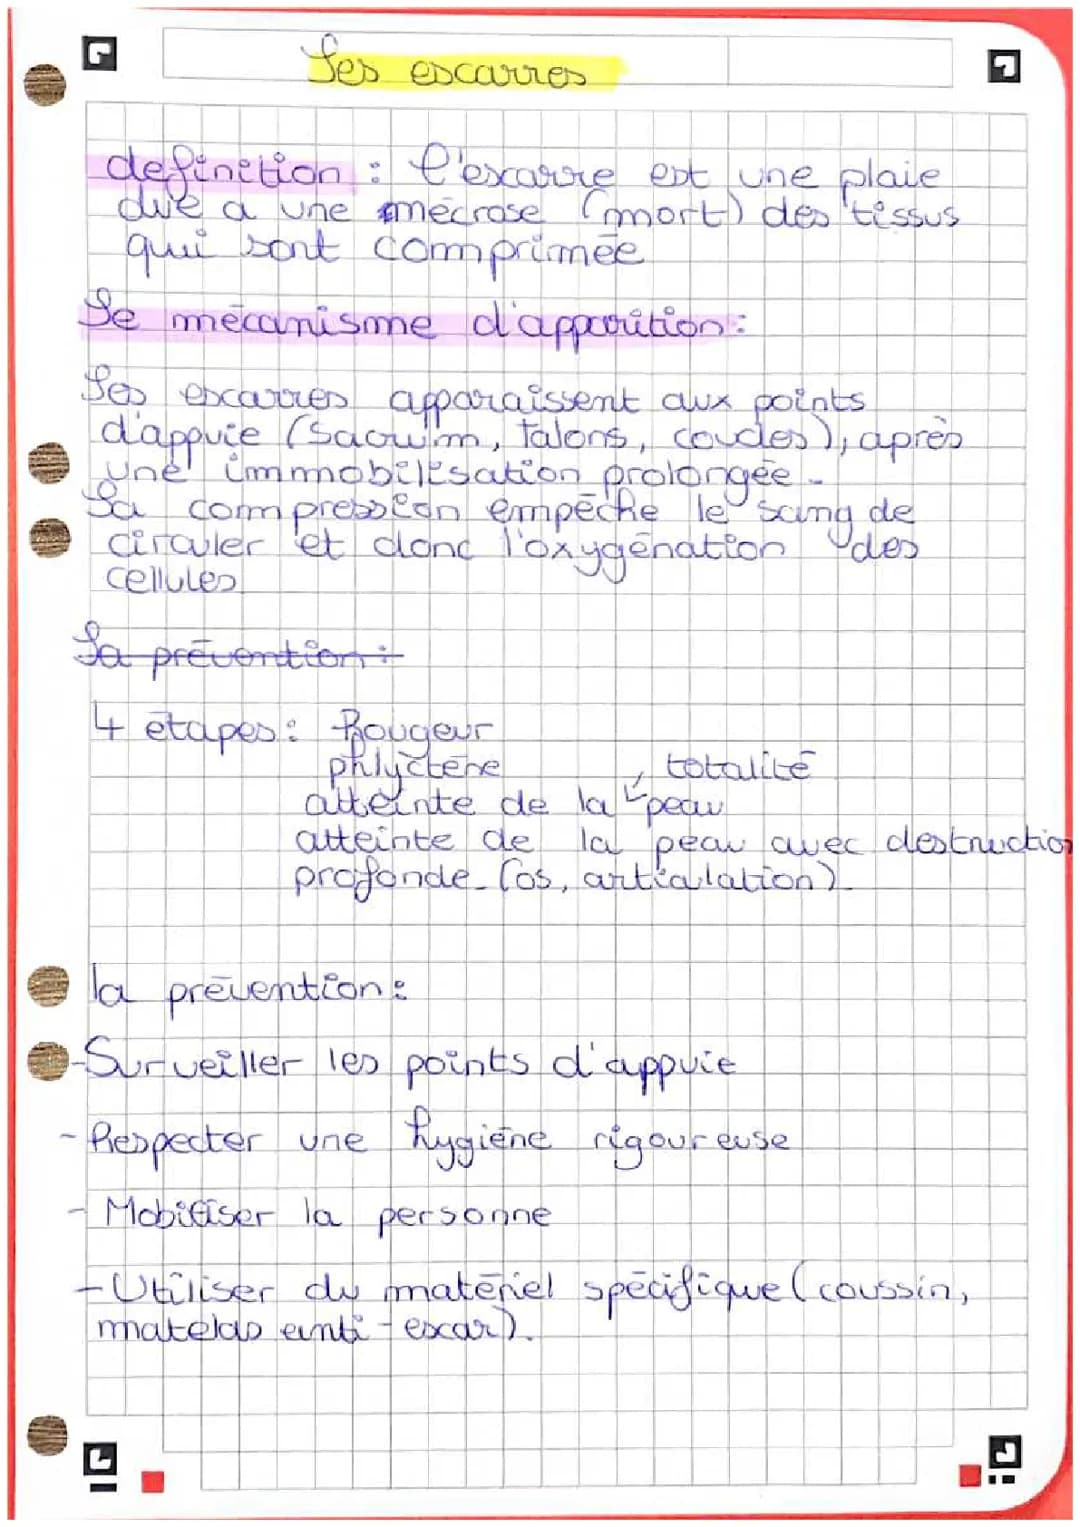 Les escarres
definition : l'escarre est une plaie
due a une mécrose (mort) des tissus
qui sont comprimée
Le mécanisme d'apparition :
Les escarres apparaissent aux points
d'appuie (sacrum, talons, coudes), après
une immobilisation prolongée.
La compression empêche le sang de
circuler et donc l'oxygénation des
cellules
La prévention :
4 étapes : Rougeur
phlyctène
totalité
atteinte de la peau
atteinte de la peau avec destruction
profonde (os, articulation).
la prévention :
-Surveiller les points d'appuie
- Respecter une hygiène rigoureuse
- Mobiliser la personne
- Utiliser du matériel spécifique (coussin,
matelas anti-escar).